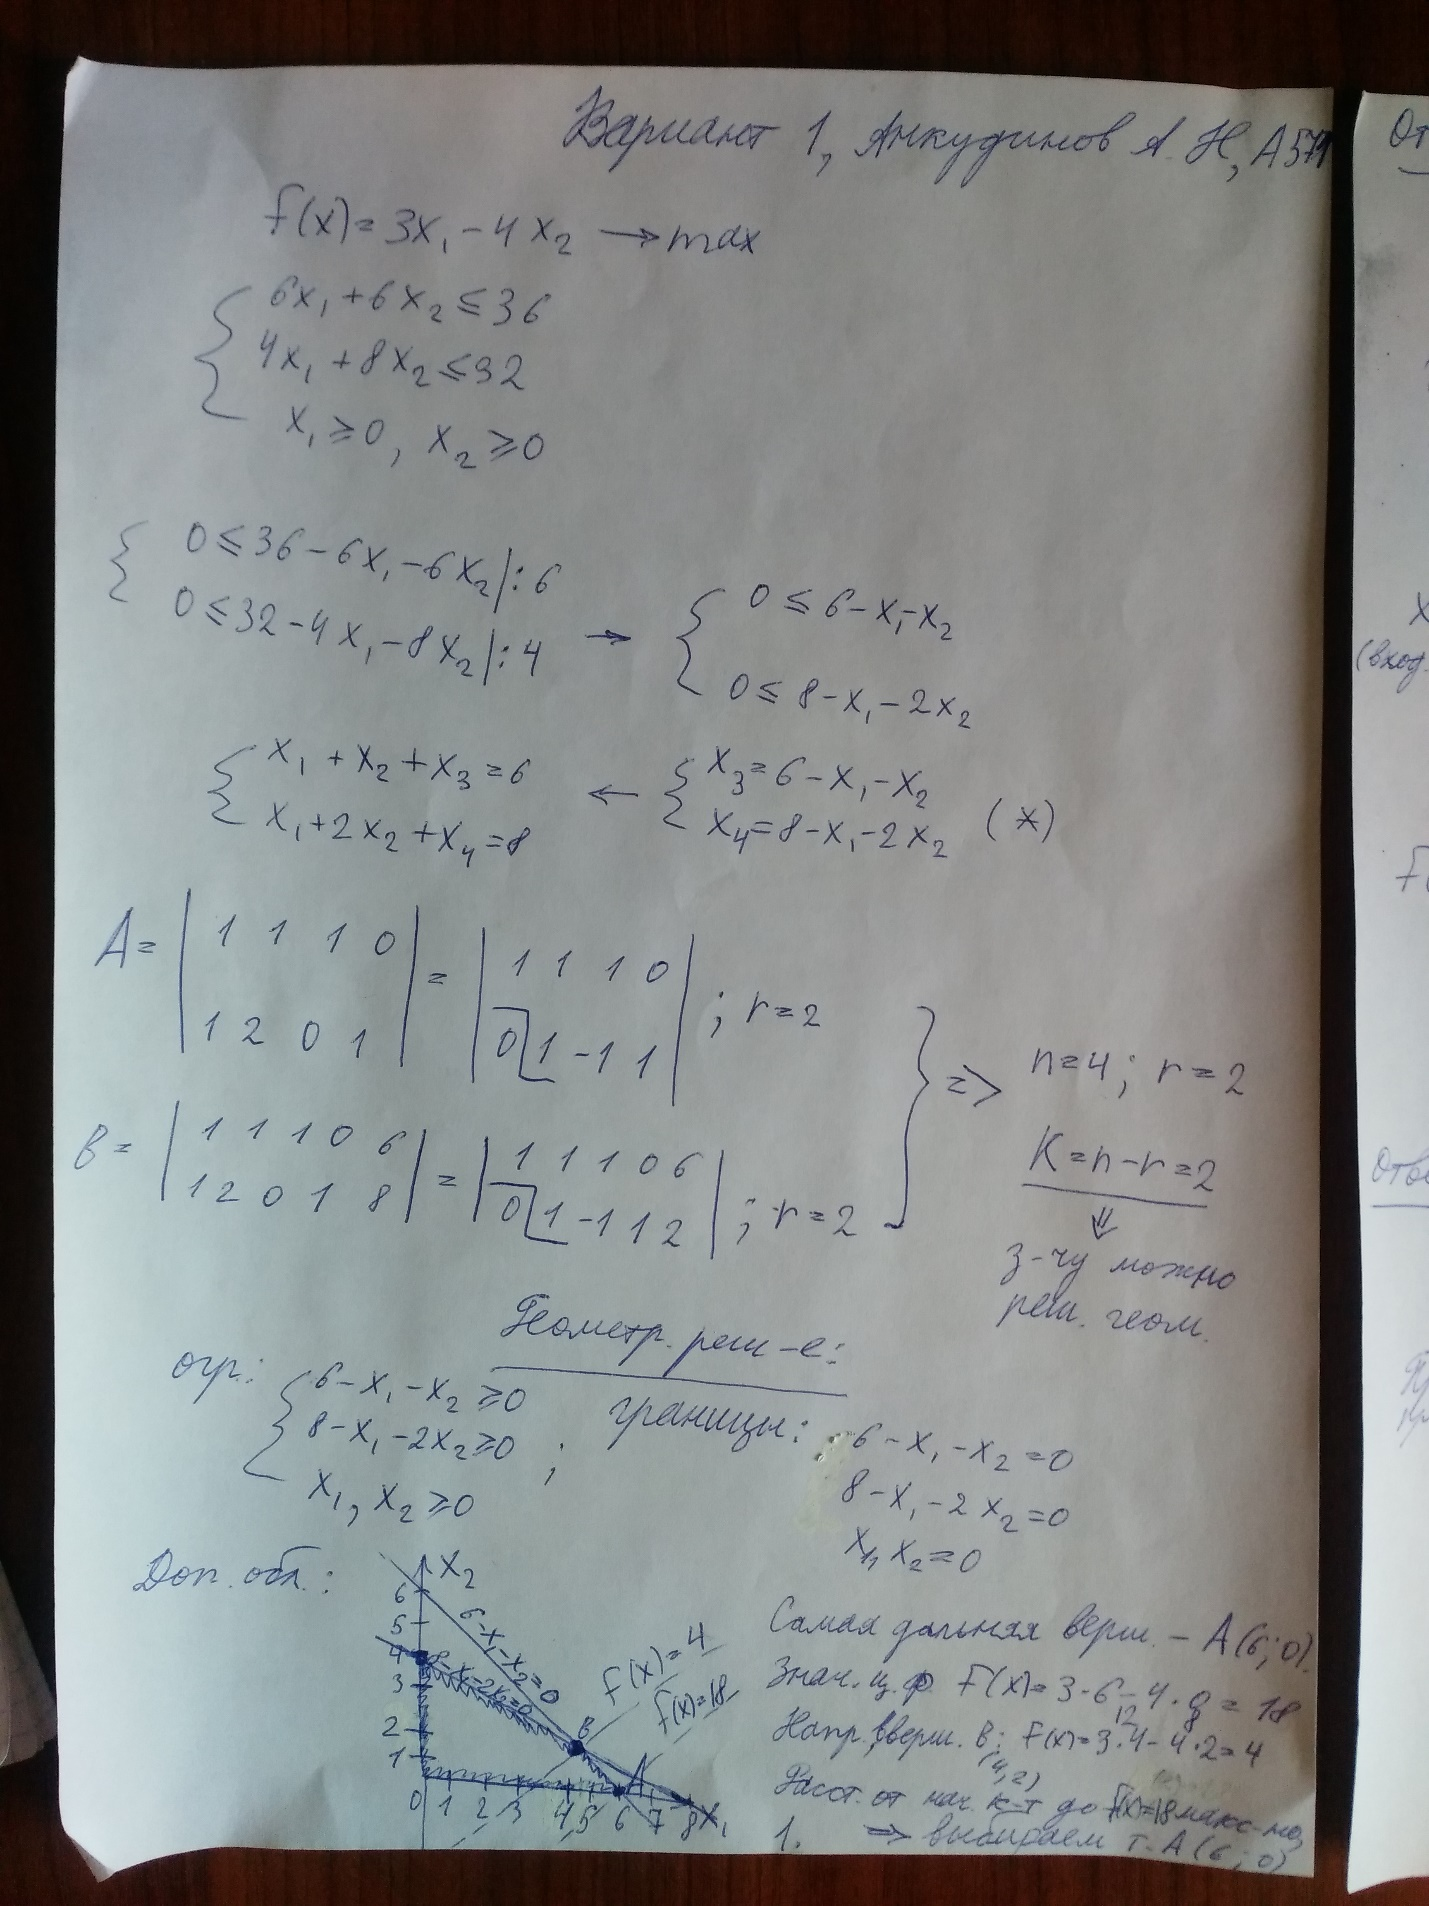 Вариант 1, Анкудинов А. Н, А5
f(x)=3x₁-4x₂ →max
6x₁+6x₂≤36
4x₁+8x₂≤32
x₁≥0, x₂≥0
0≤36-6x₁-6x₂|:6
0≤32-4x₁-8x₂|:4 →
0≤6-x₁-x₂
0≤8-x₁-2x₂
x₁+x₂+x₃=6 ← x₃=6-x₁-x₂
x₁+2x₂+x₄=8 x₄=8-x₁-2x₂ (*)
A= | 1 1 1 0 | = | 1 1 1 0 | ; r=2
| 1 2 0 1 | | 0 1 -1 1 |
=> n=4; r=2
B= | 1 1 1 0 6 | = | 1 1 1 0 6 | ; r=2
| 1 2 0 1 8 | | 0 1 -1 1 2 |
K=n-r=2
⇓
з-чу можно
реш. геом.
Геометр. реш-е:
огр.: 6-x₁-x₂≥0
8-x₁-2x₂≥0 ;
x₁, x₂≥0
границы: 6-x₁-x₂=0
8-x₁-2x₂=0
x₁, x₂=0
Доп. обл.:
x₂
6
5
4
3
2
1
0 1 2 3 4 4,5 6 7 8 x₁
6-x₁-x₂=0
8-x₁-2x₂=0
B
A
f(x)=4
f(x)=18
Самая дальняя верш. - A(6;0).
Знач. ц. ф. f(x)=3·6-4·0=18
12 8
Напр. вверш. B: f(x)=3·4-4·2=4
(4,2)
Расст. от нач. к-т до f(x)=18 макс-но,
1. => выбираем т. A(6;0)
От
x
(вход.
F(
Отве